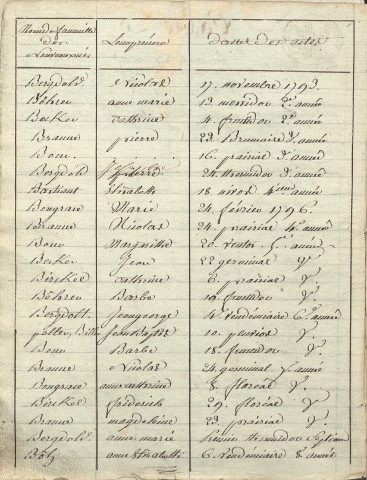 Noms de famille des Nouveaux nés | Leur prénom | dattes des actes
Bergdold | Nicolas | 17. novembre 1793.
Böhren | anne marie | 13 messidor 2e année
Becker | catherine | 4. fructidor 2e année
Braune | pierre | 23 Brumaire 3. année
Bour | 16. prairial 3. année
Bergdold | 24. thermidor 3. année
Bastiant | Elisabeth | 18. nivos 4eme année
Bongrace | Marie | 24. février 1796.
Braune | Nicolas | 24. prairial 4e année
Bour | Margueritte | 20. ventos 5e année
Becker | Jean | 22 germinal
Birckel | catherine | 6. prairial
Böhren | Barbe | 19. fructidor
Bergdolt | Jeangeorge | 4. vendémiaire 6e année
Jean Baptist | 10. pluvios
Bour | Barbe | 18. fructidor
Braune | Nicolas | 24. germinal 7. année
Bongrace | anne catherine | 8 floréal
Birckel | fréderich | 29. floréal
Braune | magdeleine | 23. prairial
Bergdold | anne marie | thermidor
Bölz | anne Elisabeth | 6. vendémiaire 8 année